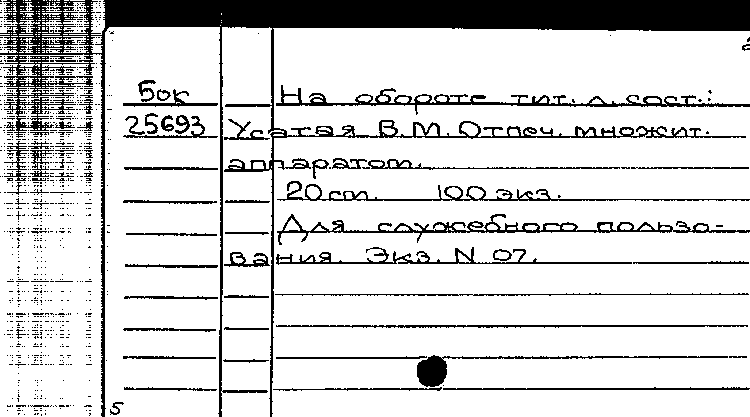 Бок На обороте тит. л. сост.:
25693 Усатая В.М. Отпеч. множит.
аппаратом.
20 см. 100 экз.
Для служебного пользо-
вания. Экз. N 07.
5